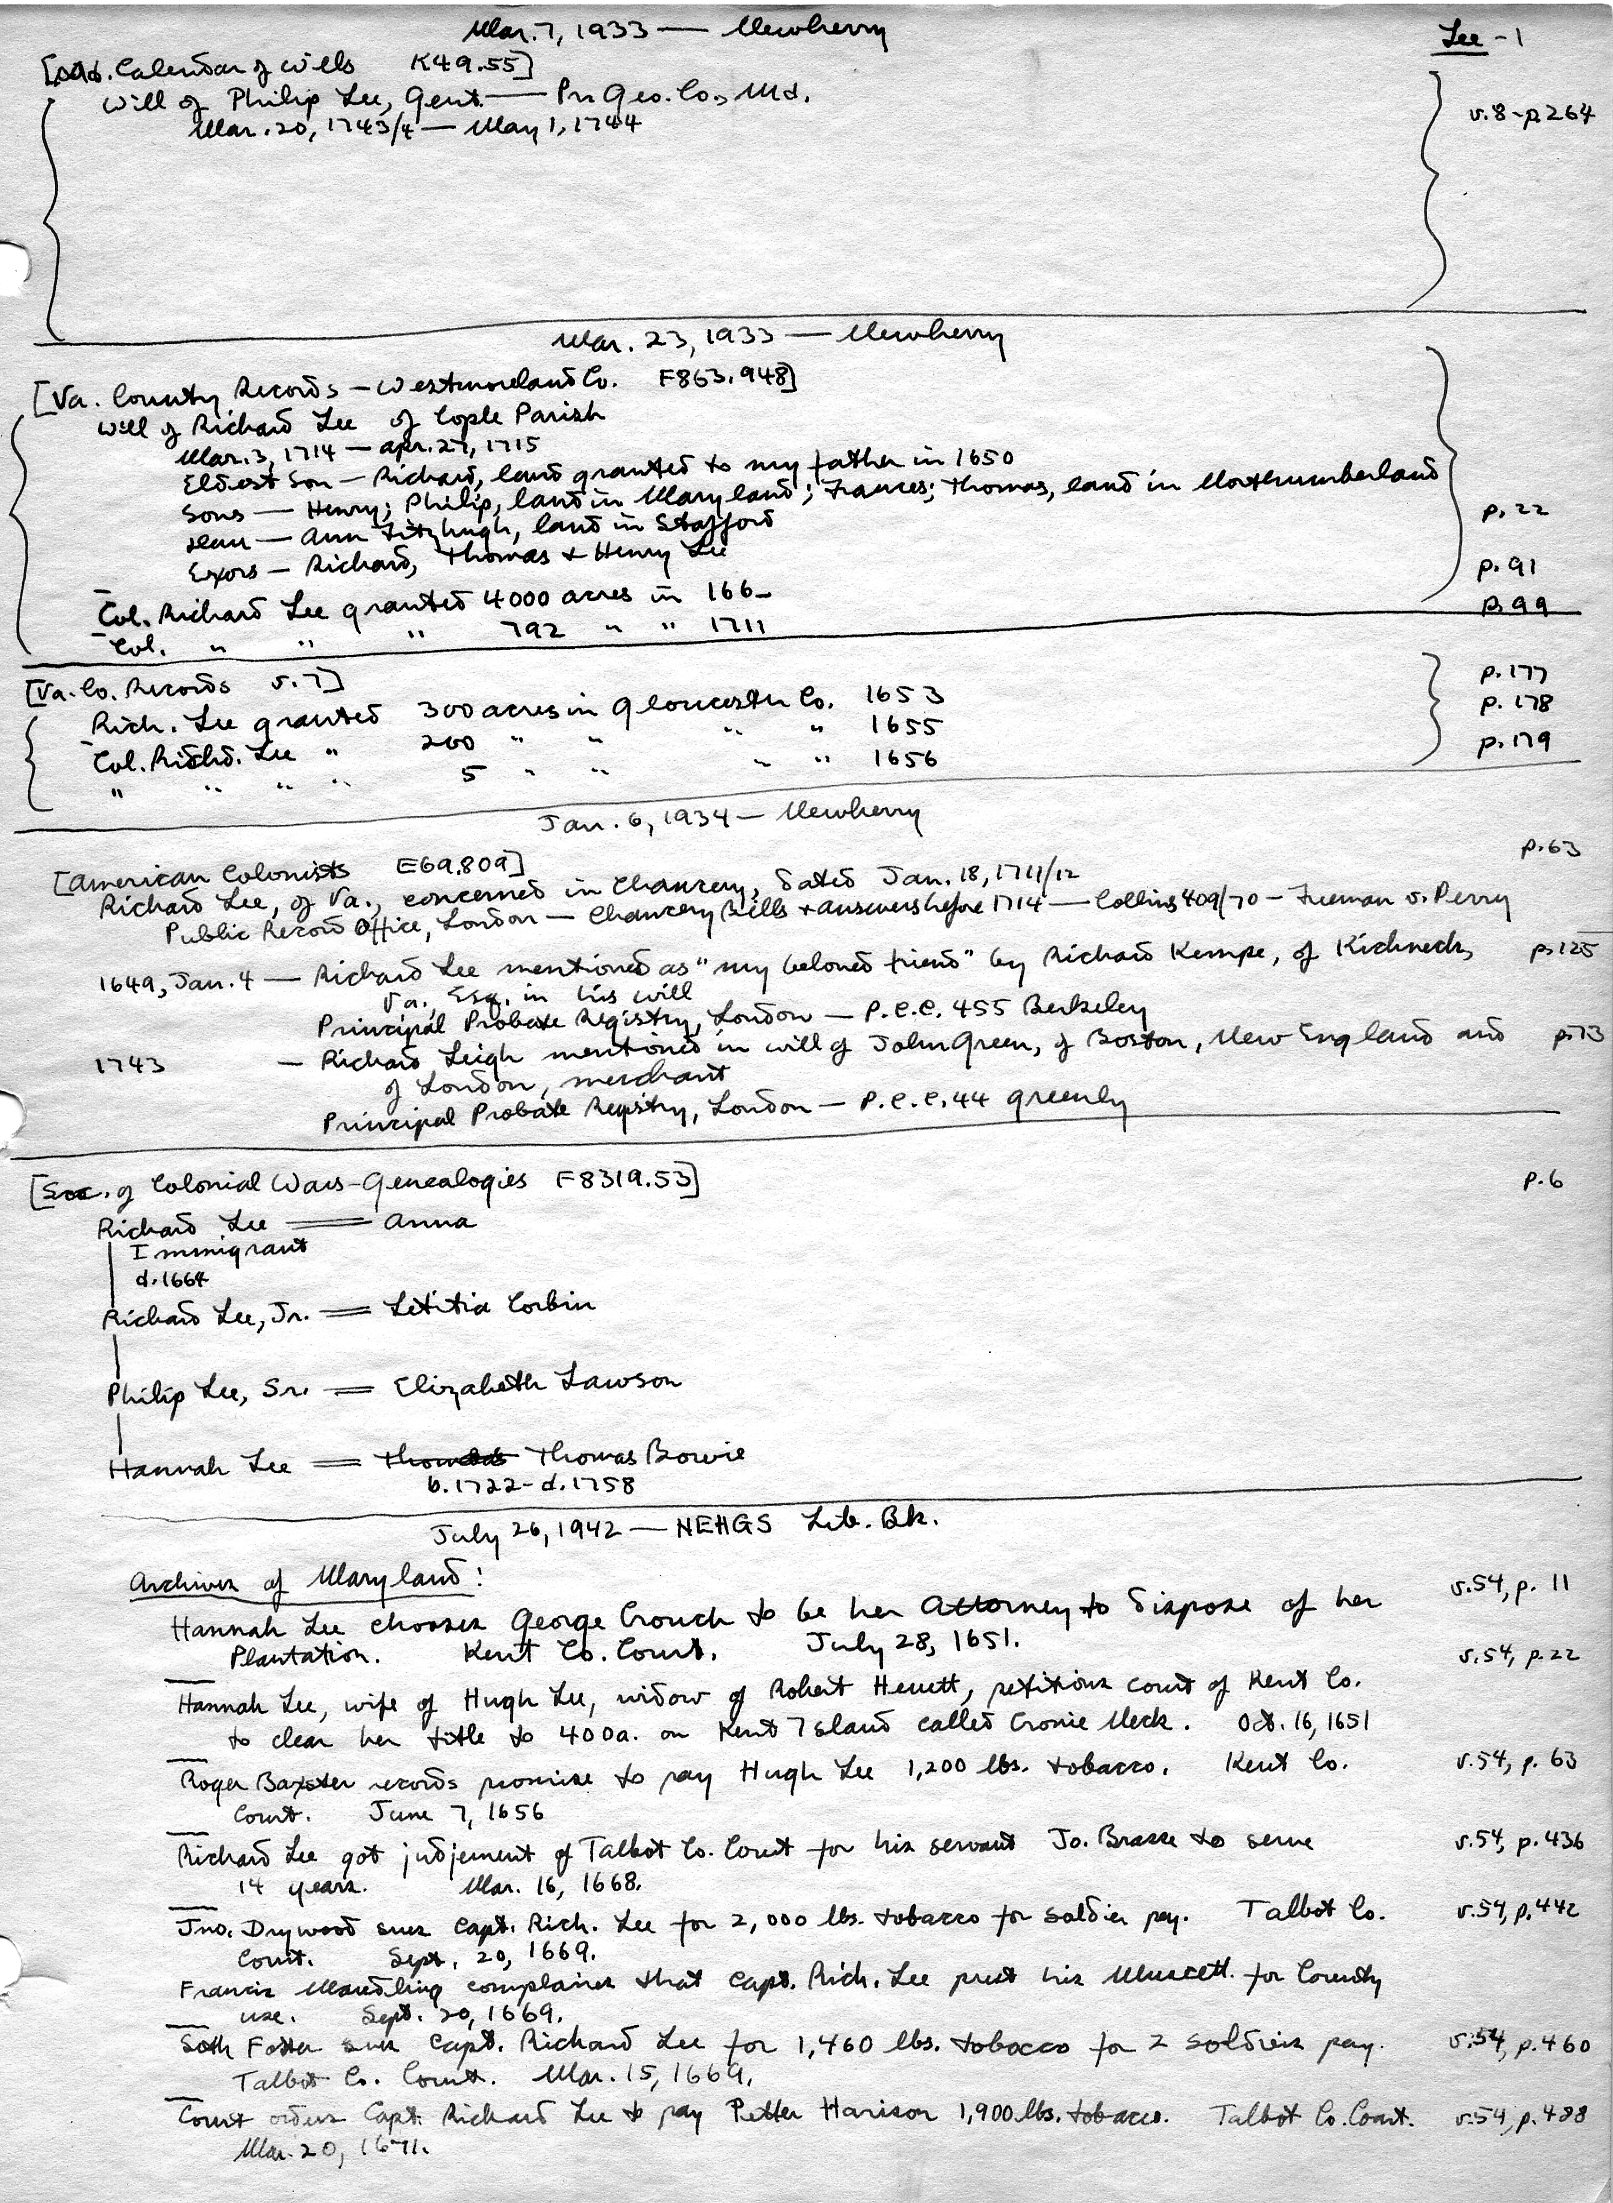 Mar. 7, 1933 — Newberry
Lee - 1
[Md. Calendar of Wills K49.55]
Will of Philip Lee, Gent. — Pr. Geo. Co., Md.
v.8-p.264
Mar. 20, 1743/4 — May 1, 1744
Mar. 23, 1933 — Newberry
[Va. County Records — Westmoreland Co. F863.948]
Will of Richard Lee of Cople Parish
Mar. 3, 1714 — Apr. 27, 1715
Eldest Son — Richard, land granted to my father in 1650
Sons — Henry; Philip, land in Maryland; Frances; Thomas, land in Northumberland
p. 22
Dau — Ann Fitzhugh, land in Stafford
Exors — Richard, Thomas & Henry Lee
p. 91
Col. Richard Lee granted 4000 acres in 166-
p. 99
Col. " " " 792 " " 1711
[Va. Co. Records v. 7]
Rich. Lee granted 300 acres in Gloucester Co. 1653
p. 177
Col. Richd. Lee " 200 " " " " 1655
p. 178
" " " " 5 " " " " 1656
p. 179
Jan. 6, 1934 — Newberry
[American Colonists E69.809]
p. 63
Richard Lee, of Va., concerned in Chancery, dated Jan. 18, 1711/12
Public Record Office, London — Chancery Bills & Answers before 1714 — Collins 409/70 — Freeman v. Perry
1649, Jan. 4 — Richard Lee mentioned as "my beloved friend" by Richard Kempe, of Kichneck,
p. 125
Va., Esq. in his will
Principal Probate Registry, London — P.C.C. 455 Berkeley
1743 — Richard Leigh mentioned in will of John Green, of Boston, New England and
p. 73
of London, merchant
Principal Probate Registry, London — P.C.C. 44 Greenly
[Soc. of Colonial Wars-Genealogies F8319.53]
p. 6
Richard Lee == Anna
Immigrant
d. 1664
Richard Lee, Jr. == Letitia Corbin
Philip Lee, Sr. == Elizabeth Lawson
Hannah Lee == Thomas Bowie
b. 1722 - d. 1758
July 26, 1942 — NEHGS Lib. Bk.
Archives of Maryland:
v. 54, p. 11
Hannah Lee chooses George Crouch to be her Attorney to dispose of her
Plantation. Kent Co. Court. July 28, 1651.
v. 54, p. 22
Hannah Lee, wife of Hugh Lee, widow of Robert Hewett, petitions court of Kent Co.
to clear her title to 400a. on Kent Island called Cronie Neck. Oct. 16, 1651
Roger Baxster records promise to pay Hugh Lee 1,200 lbs. tobacco. Kent Co.
v. 54, p. 63
Court. June 7, 1656
Richard Lee got judjement of Talbot Co. Court for his servant Jo. Brasse to serve
v. 54, p. 436
14 years. Mar. 16, 1668.
Jno. Drywood sues Capt. Rich. Lee for 2,000 lbs. tobacco for soldier pay. Talbot Co.
v. 54, p. 442
Court. Sept. 20, 1669.
Francis Mauldling complaines that Capt. Rich. Lee prest his Muscett for County
use. Sept. 20, 1669.
Seth Foster sues Capt. Richard Lee for 1,460 lbs. tobacco for 2 soldiers pay.
v. 54, p. 460
Talbot Co. Court. Mar. 15, 1669.
Court orders Capt. Richard Lee to pay Petter Harison 1,900 lbs. tobacco. Talbot Co. Court.
v. 54, p. 488
Mar. 20, 1671.